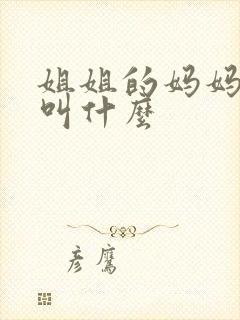 姐姐的妈妈
叫什麼
彦鷹